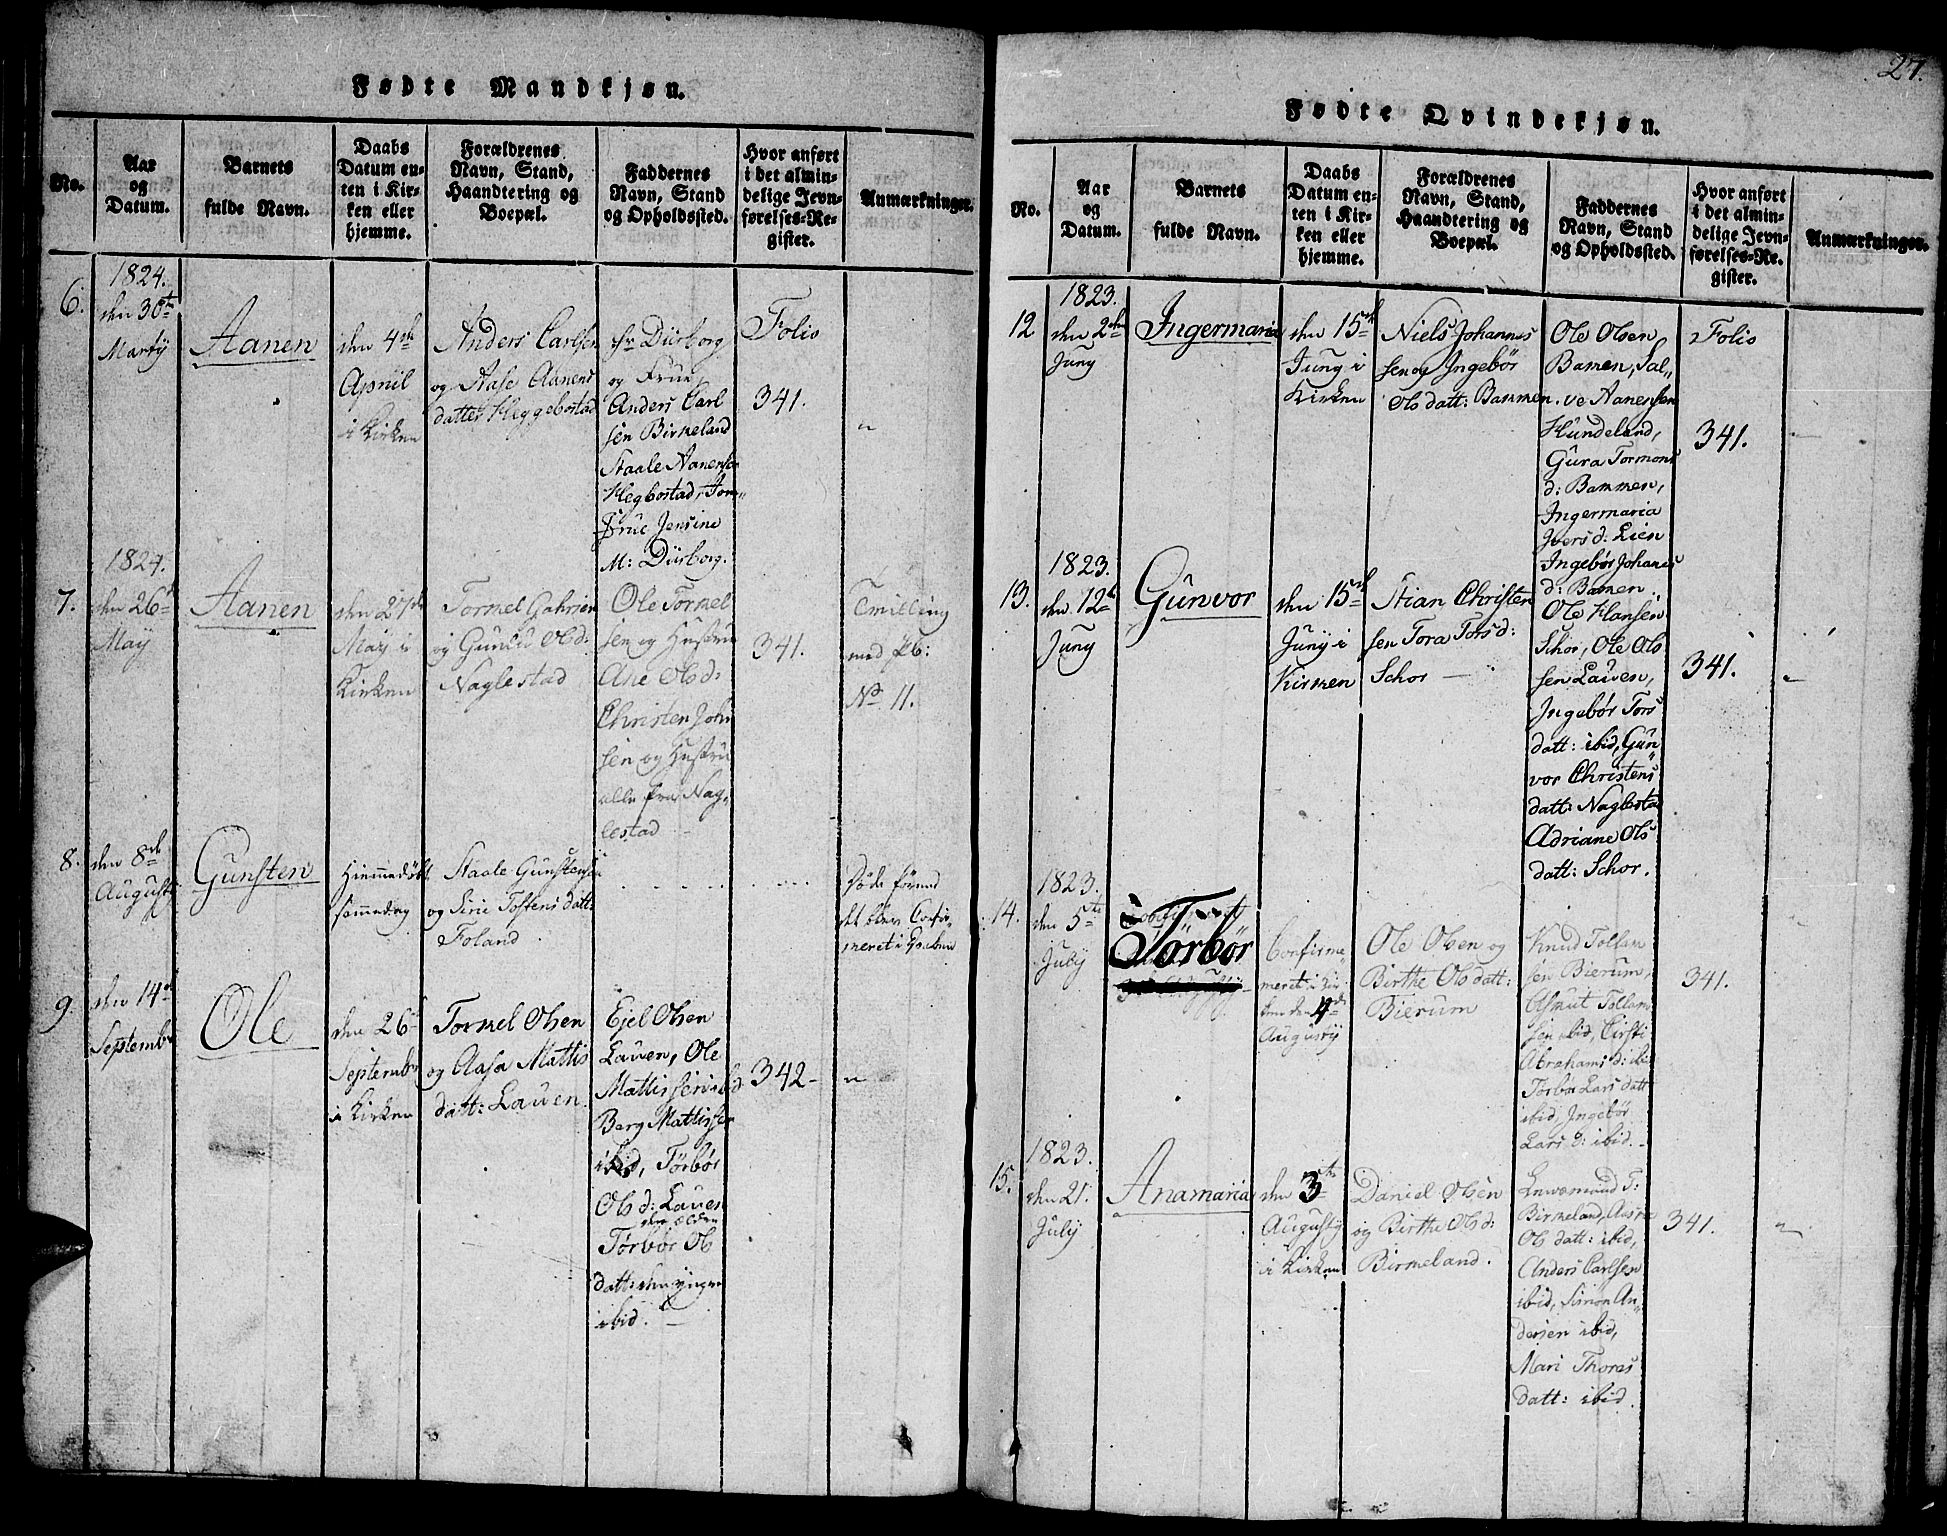 Fødte Mandkjøn.
No.
Aar
og
Datum.
Barnets
fulde Navn.
Daabs
Datum en-
ten i Kir-
ken eller
hjemme.
Forældrenes
Navn, Stand,
Haandtering og
Boepæl.
Faddernes
Navn, Stand
og Opholdssted.
Hvor anført
i det almin-
delige Jevn-
førelses-Re-
gister.
Anmærkninger.
6.
1824.
den 30te
Martij
Aanen
den 4de
Apriil
i Kirken
Anders Carlsen
og Aase Aanens
datter Heggebostad
Hr Dürborg
og Frue,
Anders Carl
sen Birkeland
Staale Aanensen
Hegbostad, Jom,,
Frue Jensine
M: Dürborg.
Folio
341.
"
7.
1824.
den 26de
Maij
Aanen
den 27de
Maij i
Kirken
Tormel Gabriels
og Gunild Ols d:
Naglestad
Ole Tormel
sen og Hustru
Ane Ols d:
Christen John
sen og Hustru
alle fra Nag,,
lestad
341.
Tvilling
med Pb:
No 11.
8.
den 8de
Augusti
Gunsten
Hiemmedøbt
sammedag
Staale Gunstensen
og Sirie Tostens datt:
Foland
Døde førend
det blev Confir,,
meret i Daaben
9.
den 14de
Septembr
Ole
den 26de
Septembr
i Kirken
Tormel Olsen
og Aasa Mattis
datt: Lauen.
Ejel Olsen
Lauen, Ole
Mattissen ibid
Berg Mattissen
ibid, Tørbør
Ols d: Lauen
den ælden
Tørbør Ols
datt: den yngre
ibid.
342-
"
27.
Fødte Qvindekjøn.
No.
Aar
og
Datum.
Barnets
fulde Navn.
Daabs
Datum en-
ten i Kir-
ken eller
hjemme.
Forældrenes
Navn, Stand,
Haandtering og
Boepæl.
Faddernes
Navn, Stand
og Opholdssted.
Hvor anført
i det almin-
delige Jevn-
førelses-Re-
gister.
Anmærkninger.
12
1823.
den 2den
Junij
Ingermaria
den 15de
Junij i
Kirken
Niels Johannes
sen og Ingebør
Ols datt: Bammen.
Ole Olsen
Bamen, Sal,,
ve Aanensen
Hundeland,
Gura Tormons
d: Bammen,
Ingermaria
Ivers d: Lien
Ingebør Johanes
d: Bamen
Folio
341.
13.
1823.
den 12te
Junij
Gunvor
den 15de
Junij i
Kirken
Stian Christen
sen Tora Tors d:
Schor
Ole Hansen
Schor, Ole Ols
sen Lauen,
Ingebør Tors
datt: ibid, Gun
vor Christens
datt: Naglestad
Adriane Ols
datt: Schor.
341.
14.
1823.
den 5te
Julij
Torbør
Confirme,,
meret i Kir
ken den 4de
Augustij
Ole Olsen og
Birthe Ols datt:
Bierum
Knud Tollam
sen Bierum,
Asmut Tollam
sen ibid, Kirsti
Abrahams d: ibid
Torbør Lars datt
ibid, Ingebør
Lars d: ibid.
341.
15.
1823.
den 21.
Julij
Anamaria
den 3te
Augustij
i Kirken
Daniel Olsen
og Birthe Ols d:
Birkeland.
Birkeland,
Ols datt: ibid,
Anders Carlsen
ibid, Simon An,,
dersen ibid,
Mari Thores
datt: ibid.
341.
"